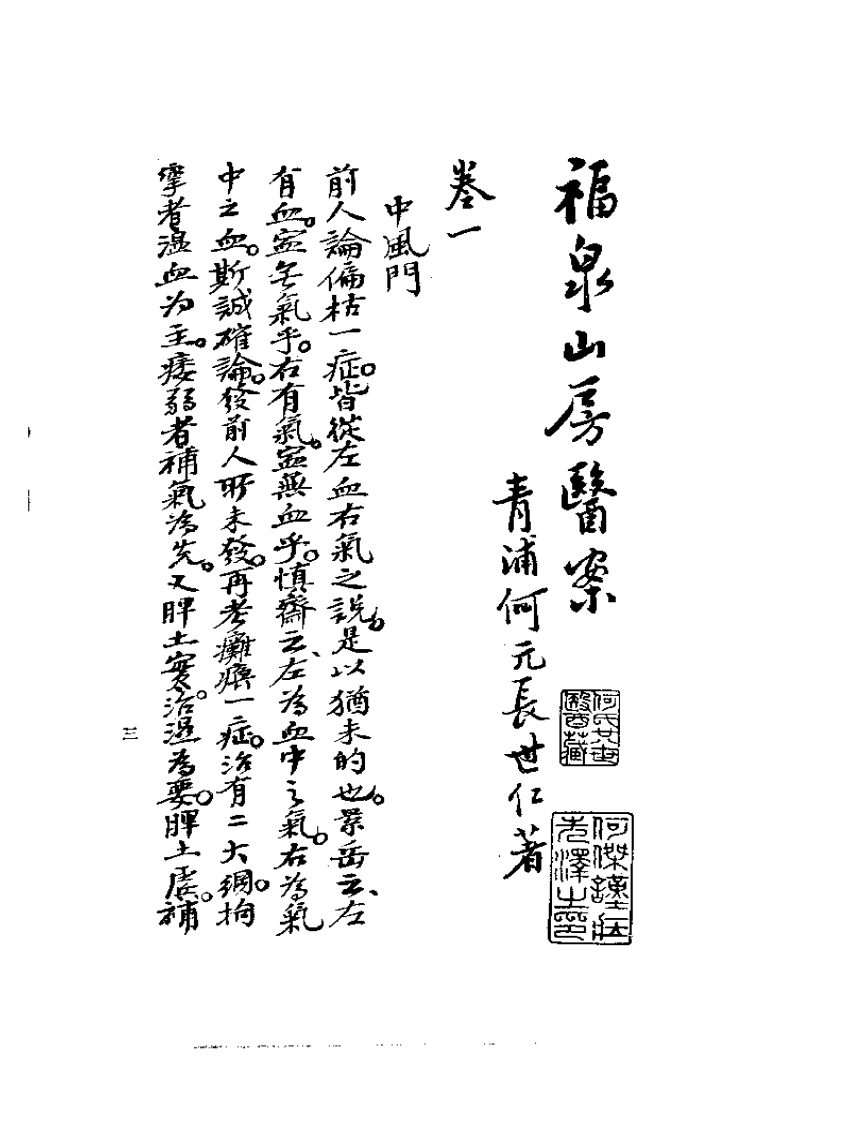 福泉山房醫案
青浦何元長世仁著
何氏廿世醫藏
何傑謹莊先澤之印
卷一
中風門
前人論偏枯一症。皆從左血右氣之說。是以猶未的也。景岳云、左
有血。寍无氣乎。右有氣。寍無血乎。慎齋云、左為血中之氣。右為氣
中之血。斯誠確論。發前人所未發。再考癱瘓一症。治有二大綱。拘
攣者溫血为主。痿弱者補氣為先。又脾土實。治濕為要。脾土虛。補
三